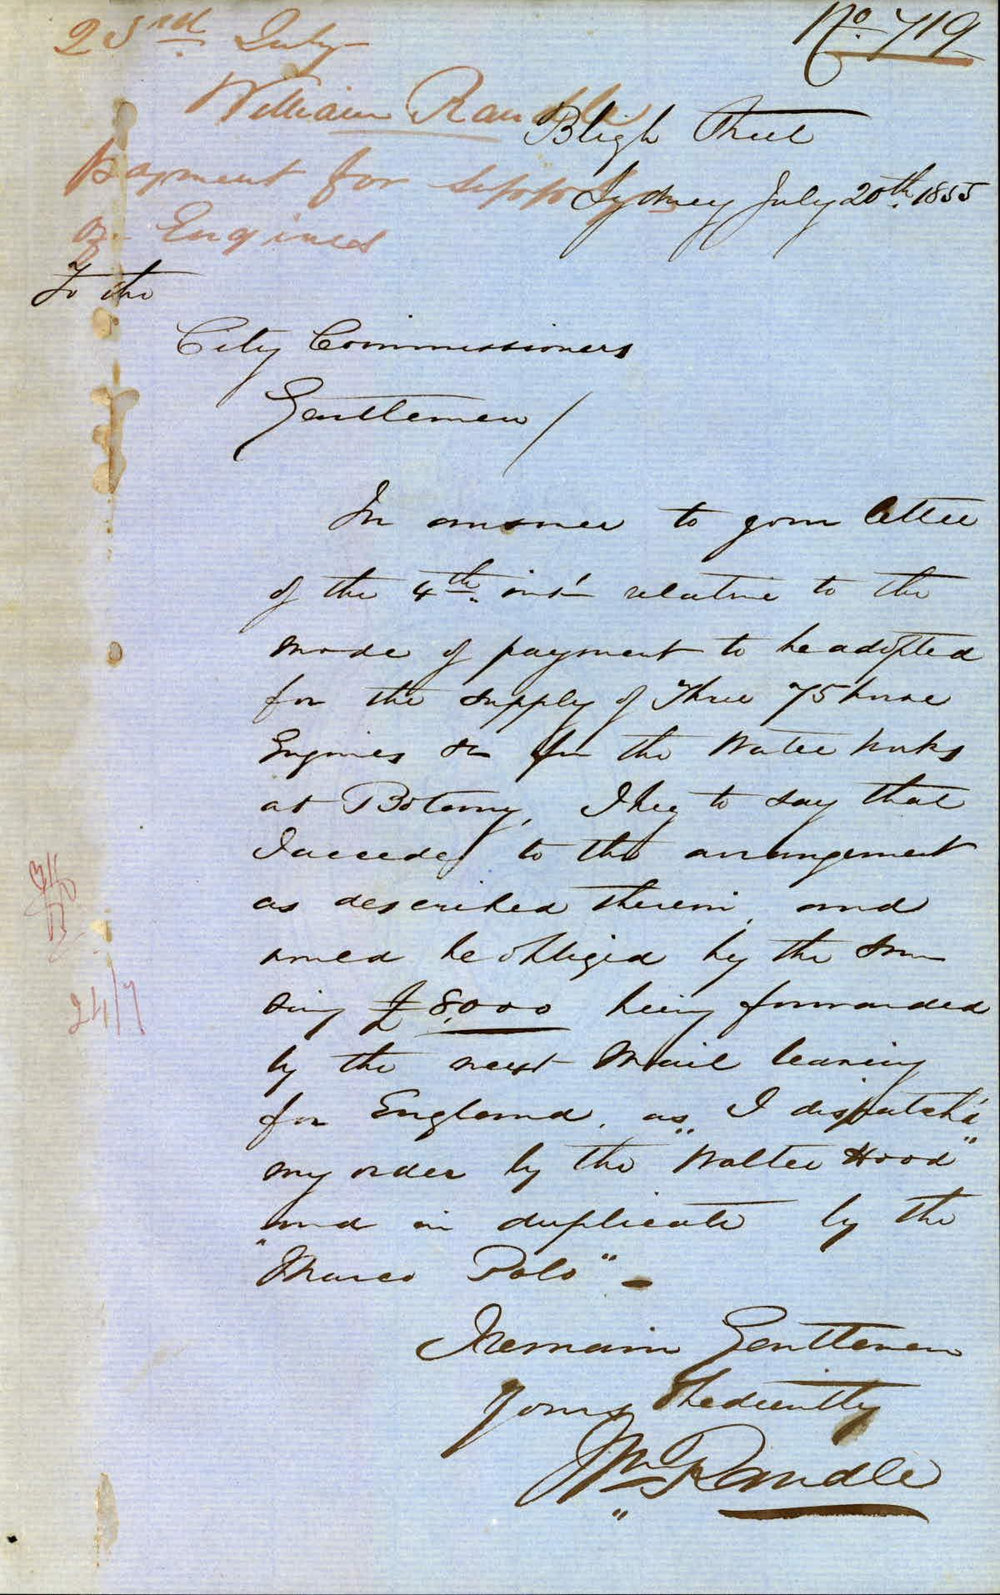 No. 719
23rd July
William Randle
payment for supply
of Engines
Bligh Street
Sydney July 20th. 1855
To the
City Commissioners
Gentlemen /
In answer to your letter
of the 4th. inst relative to the
mode of payment to be adopted
for the supply of Three 75 horse
Engines &c for the Water Works
at Botany, I beg to say that
I accede to the arrangement
as described therein, and
would be obliged by the Sum
being £8,000 being forwarded
by the next Mail leaving
for England, as I dispatch'd
my order by the "Walter Hood"
and in duplicate by the
"Marco Polo" -
I remain Gentlemen
Yours Obediently
Wm Randle
24/7